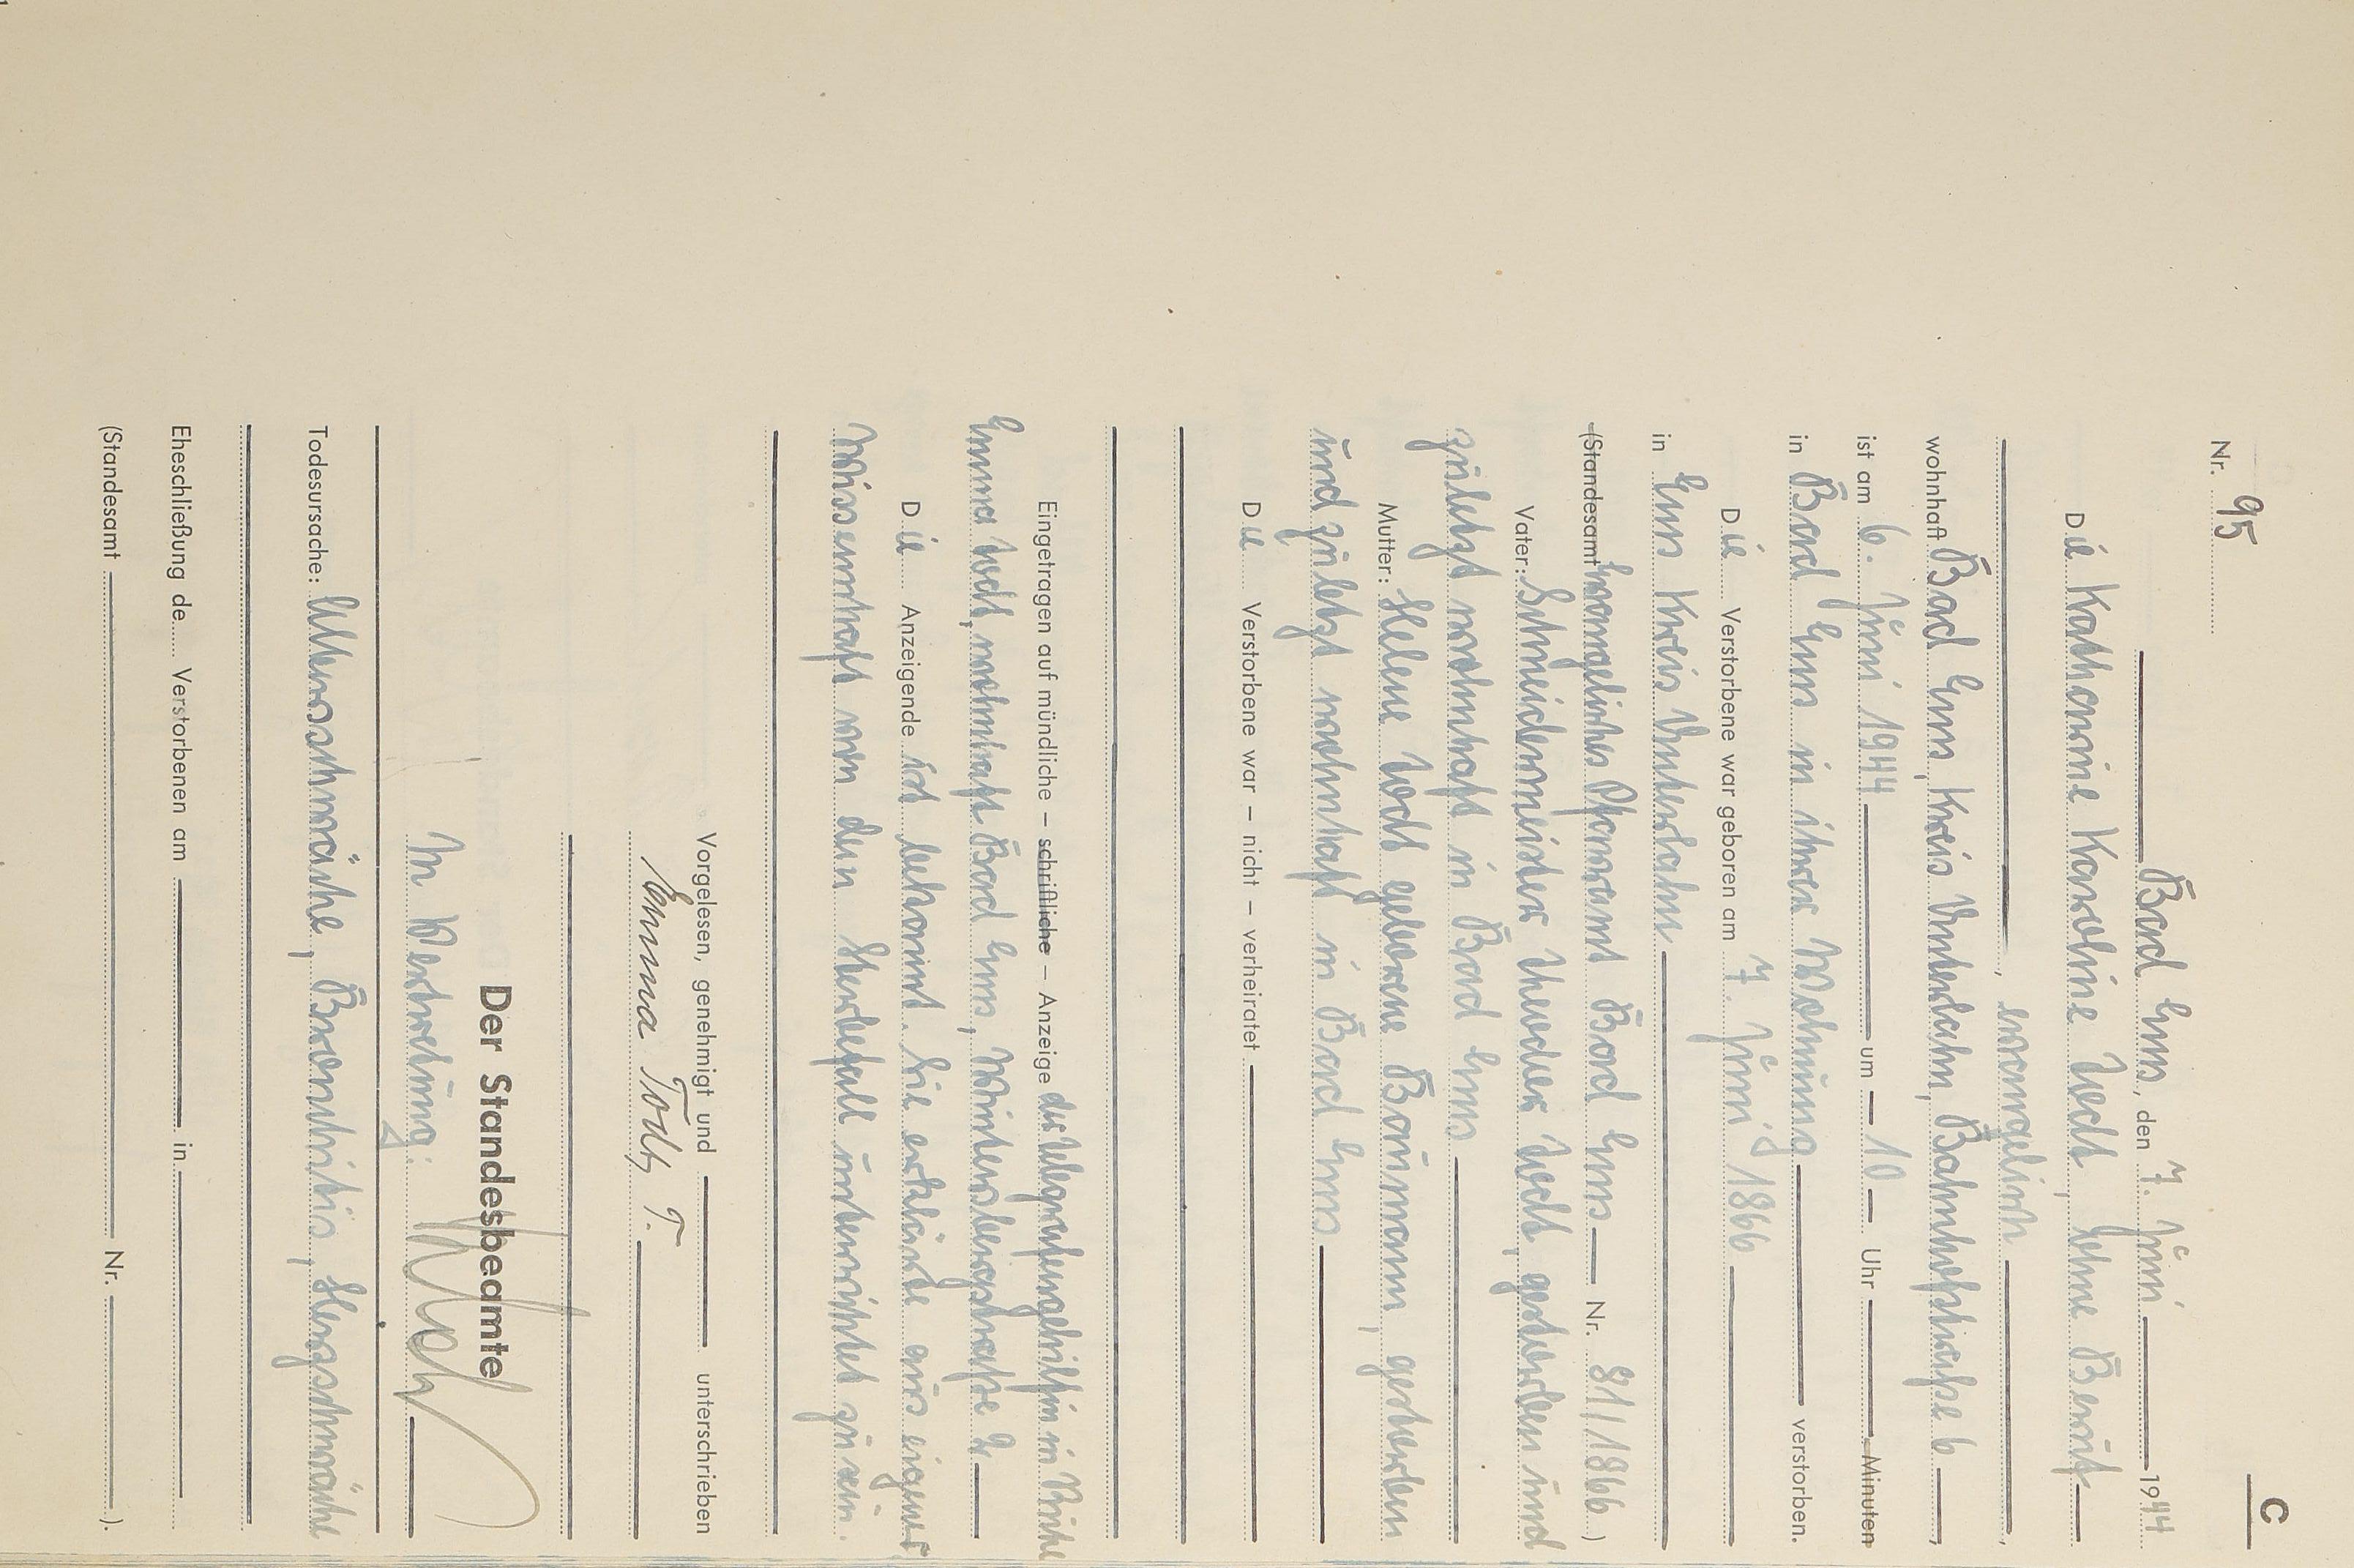 C
Nr. 95
Bad Ems, den 7. Juni 1944
Die Katharine Karoline Todt, ohne Beruf
, evangelisch,
wohnhaft Bad Ems, Kreis Unterlahn, Bahnhofstraße 6,
ist am 6. Juni 1944 um – 10 – Uhr Minuten
in Bad Ems in ihrer Wohnung verstorben.
Die Verstorbene war geboren am 7. Juni 1866
in Ems Kreis Unterlahn
(Standesamt Evangelisches Pfarramt Bad Ems Nr. 81/1866)
Vater: Schneidermeister Theodor Todt, gestorben und
zuletzt wohnhaft in Bad Ems
Mutter: Helene Todt geborene Baumann, gestorben
und zuletzt wohnhaft in Bad Ems
Die Verstorbene war – nicht – verheiratet
Eingetragen auf mündliche – schriftliche – Anzeige der Telegrafengehilfin in Ruhe
Emma Todt, wohnhaft Bad Ems, Wintersbergstraße 2
Die Anzeigende ist bekannt. Sie erklärte aus eigener
Wissenschaft von dem Sterbefall unterrichtet zu sein.
Vorgelesen, genehmigt und unterschrieben
Emma Todt, T.
Der Standesbeamte
In Vertretung:
Todesursache: Altersschwäche, Bronchitis, Herzschwäche
Eheschließung de Verstorbenen am in
(Standesamt Nr. ).